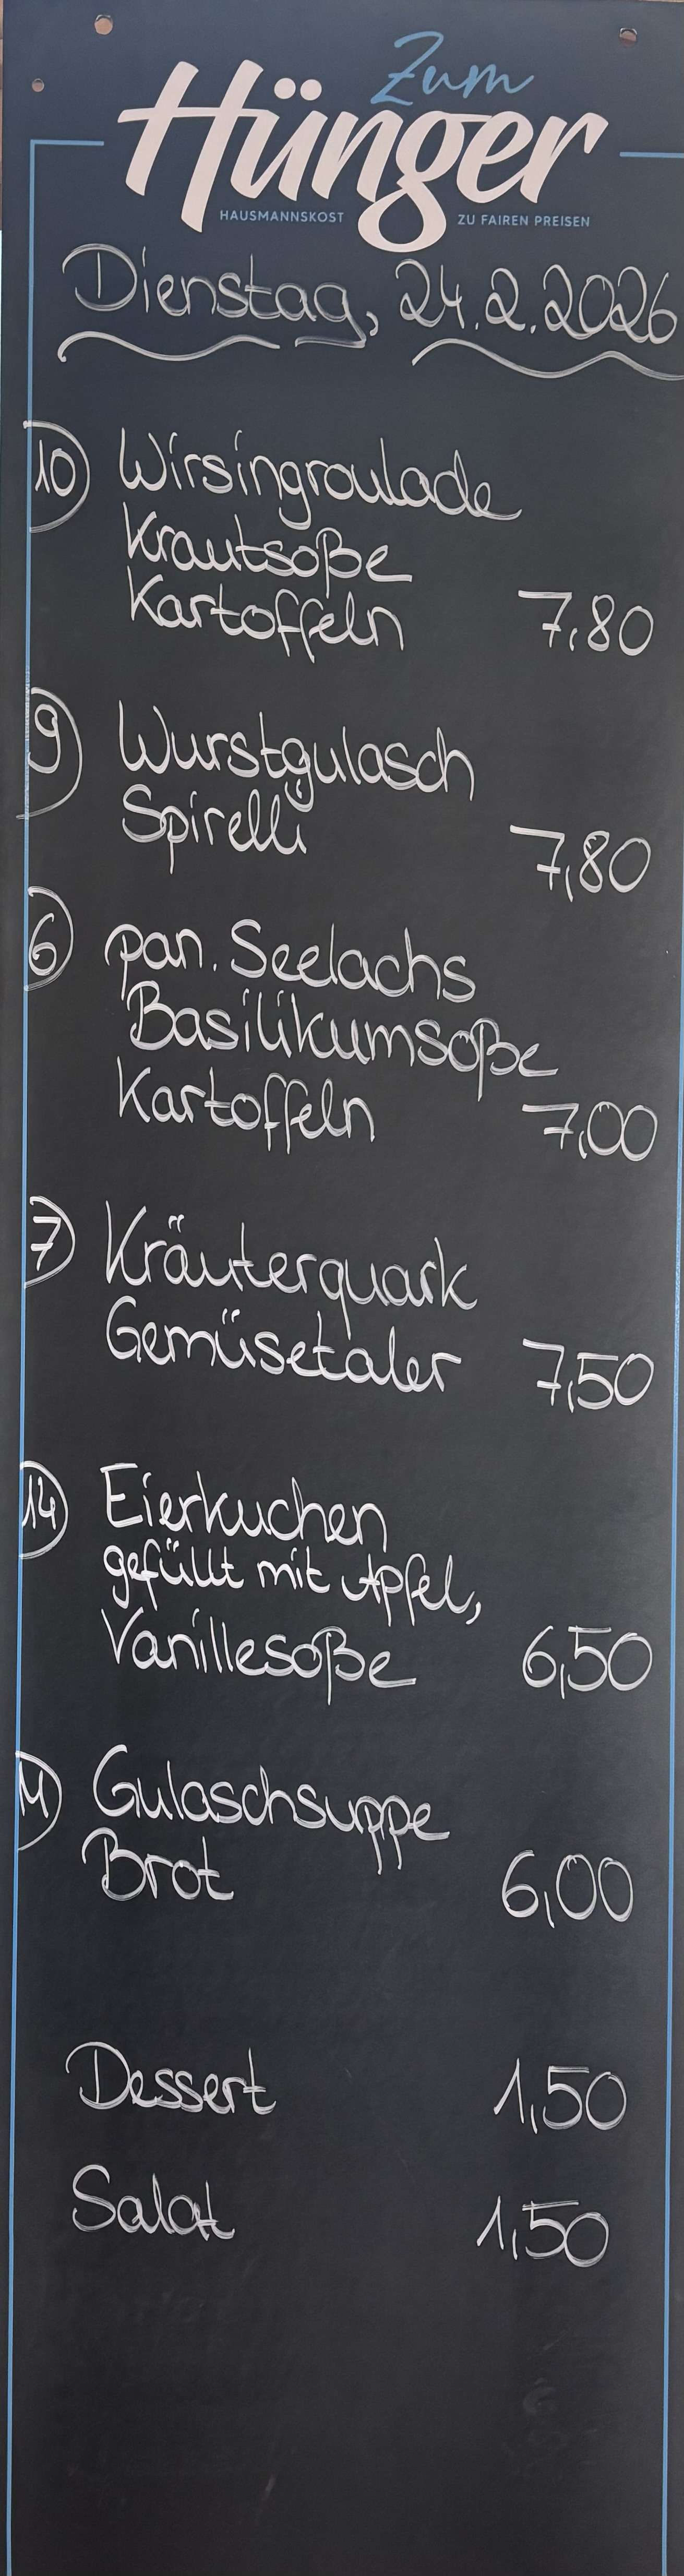 Zum
Hünger
HAUSMANNSKOST ZU FAIREN PREISEN
Dienstag, 24.2.2026
10 Wirsingroulade
Krautsoße
Kartoffeln 7,80
9 Wurstgulasch
Spirelli 7,80
6 pan. Seelachs
Basilikumsoße
Kartoffeln 7,00
7 Kräuterquark
Gemüsetaler 7,50
14 Eierkuchen
gefüllt mit Apfel,
Vanillesoße 6,50
Gulaschsuppe
Brot 6,00
Dessert 1,50
Salat 1,50